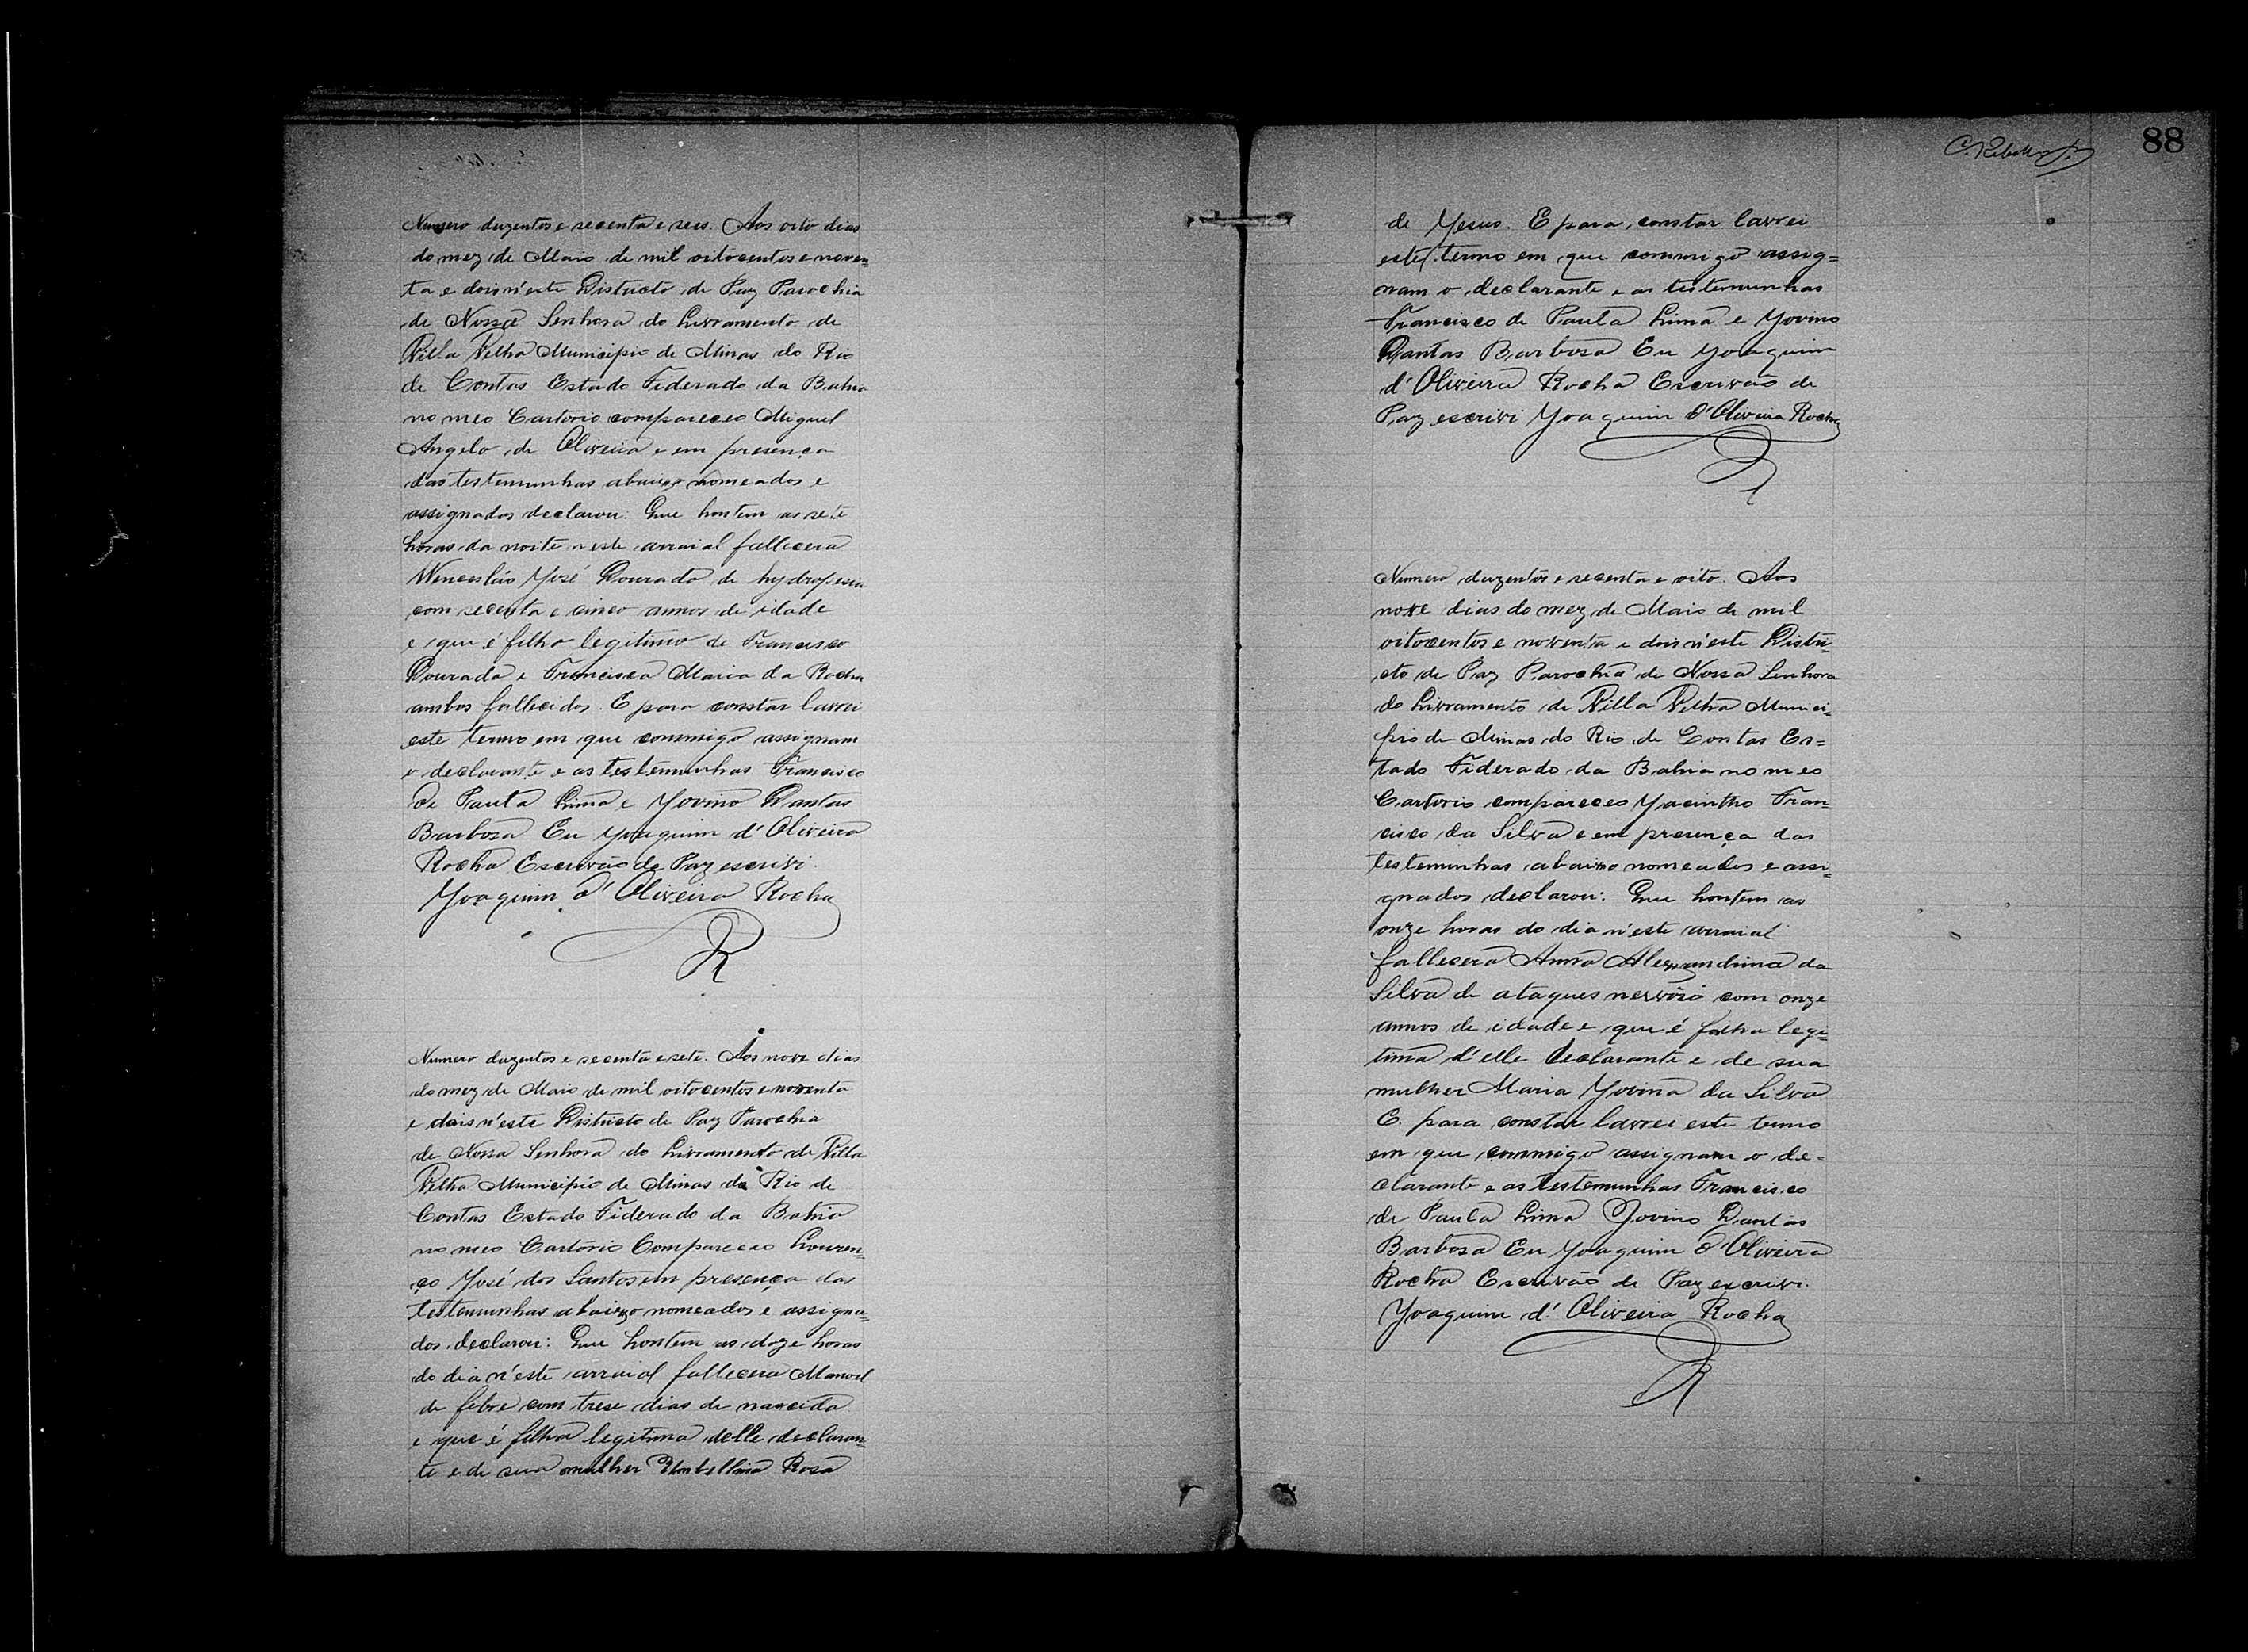 Numero duzentos e secenta e seis. Aos oito dias
do mez de Maio de mil oitocentos e noven
ta e dois n'este Districto de Paz Parochia
de Nossa Senhora do Livramento de
Villa Velha Municipio de Minas do Rio
de Contas Estado Fiderado da Bahia
no meo Cartorio compareceo Miguel
Angelo de Oliveira e em presença
das testemunhas abaixo nomeados e
assignados declarou: Que hontem as sete
horas da noite n'este arraial fallecera
Wencesláo José Dourado de hydropesia
com secenta e cinco annos de idade
e que é filho legitimo de Francisco
Dourado e Francisca Maria da Rocha
ambos fallecidos. E para constar lavrei
este termo em que commigo assignam
o declarante e as testemunhas Francisco
de Paula Lima e Jovino Dantas
Barbosa Eu Joaquim d'Oliveira
Rocha Escrivão de Paz escrivi.
Joaquim d'Oliveira Rocha
R
Numero duzentos e secenta e sete. Aos nove dias
do mez de Maio de mil oitocentos e noventa
e dois n'este Districto de Paz Parochia
de Nossa Senhora do Livramento de Villa
Velha Municipio de Minas do Rio de
Contas Estado Fiderado da Bahia
no meo Cartorio Compareceo Louren=
ço José dos Santos em presença das
testemunhas abaixo nomeados e assigna=
dos declarou: Que hontem as doze horas
do dia n'este arraial fallecera Manoel
de febre com trese dias de nascida
e que é filha legitima delle declaran=
te e de sua mulher Umbellina Rosa
88
de Jesus. E para constar lavrei
este termo em que commigo assig=
nam o declarante e as testemunhas
Francisco de Paula Lima e Jovino
Dantas Barbosa Eu Joaquim
d'Oliveira Rocha Escrivão de
Paz escrivi Joaquim d'Oliveira Rocha
R
Numero duzentos e secenta e oito. Aos
nove dias do mez de Maio de mil
oitocentos e noventa e dois n'este Distri=
cto de Paz Parochia de Nossa Senhora
do Livramento de Villa Velha Munici=
pio de Minas do Rio de Contas Es=
tado Fiderado da Bahia no meo
Cartorio compareceo Jacintho Fran
cisco da Silva e em presença das
testemunhas abaixo nomeados e assi=
gnados declarou: Que hontem as
onze horas do dia n'este arraial
fallecera Anna Alexandrina da
Silva de ataques nervoso com onze
annos de idade e que é filha legi=
tima d'elle declarante e de sua
mulher Maria Jovina da Silva
E para constar lavrei este termo
em que commigo assignam o de=
clarante e as testemunhas Francisco
de Paula Lima Jovino Dantas
Barbosa Eu Joaquim d'Oliveira
Rocha Escrivão de Paz escrivi.
Joaquim d'Oliveira Rocha
R